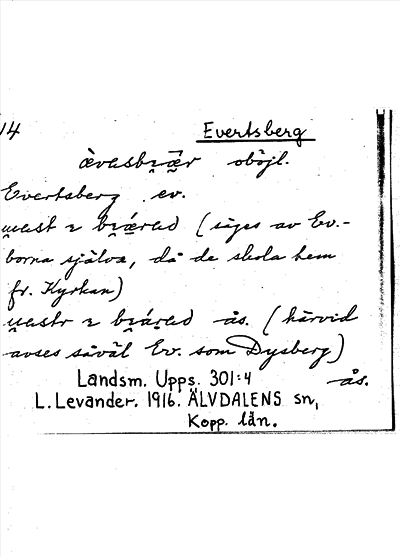 14
Evertsberg
oböjl.
Evertsberg ev.
(säges av Ev.-
borna själva, då de skola hem
fr. Kyrkan)
ås. (härvid
avses såväl Ev. som Dysberg)
ås.
Landsm. Upps. 301:4
L. Levander. 1916. ÄLVDALENS sn,
Kopp. län.